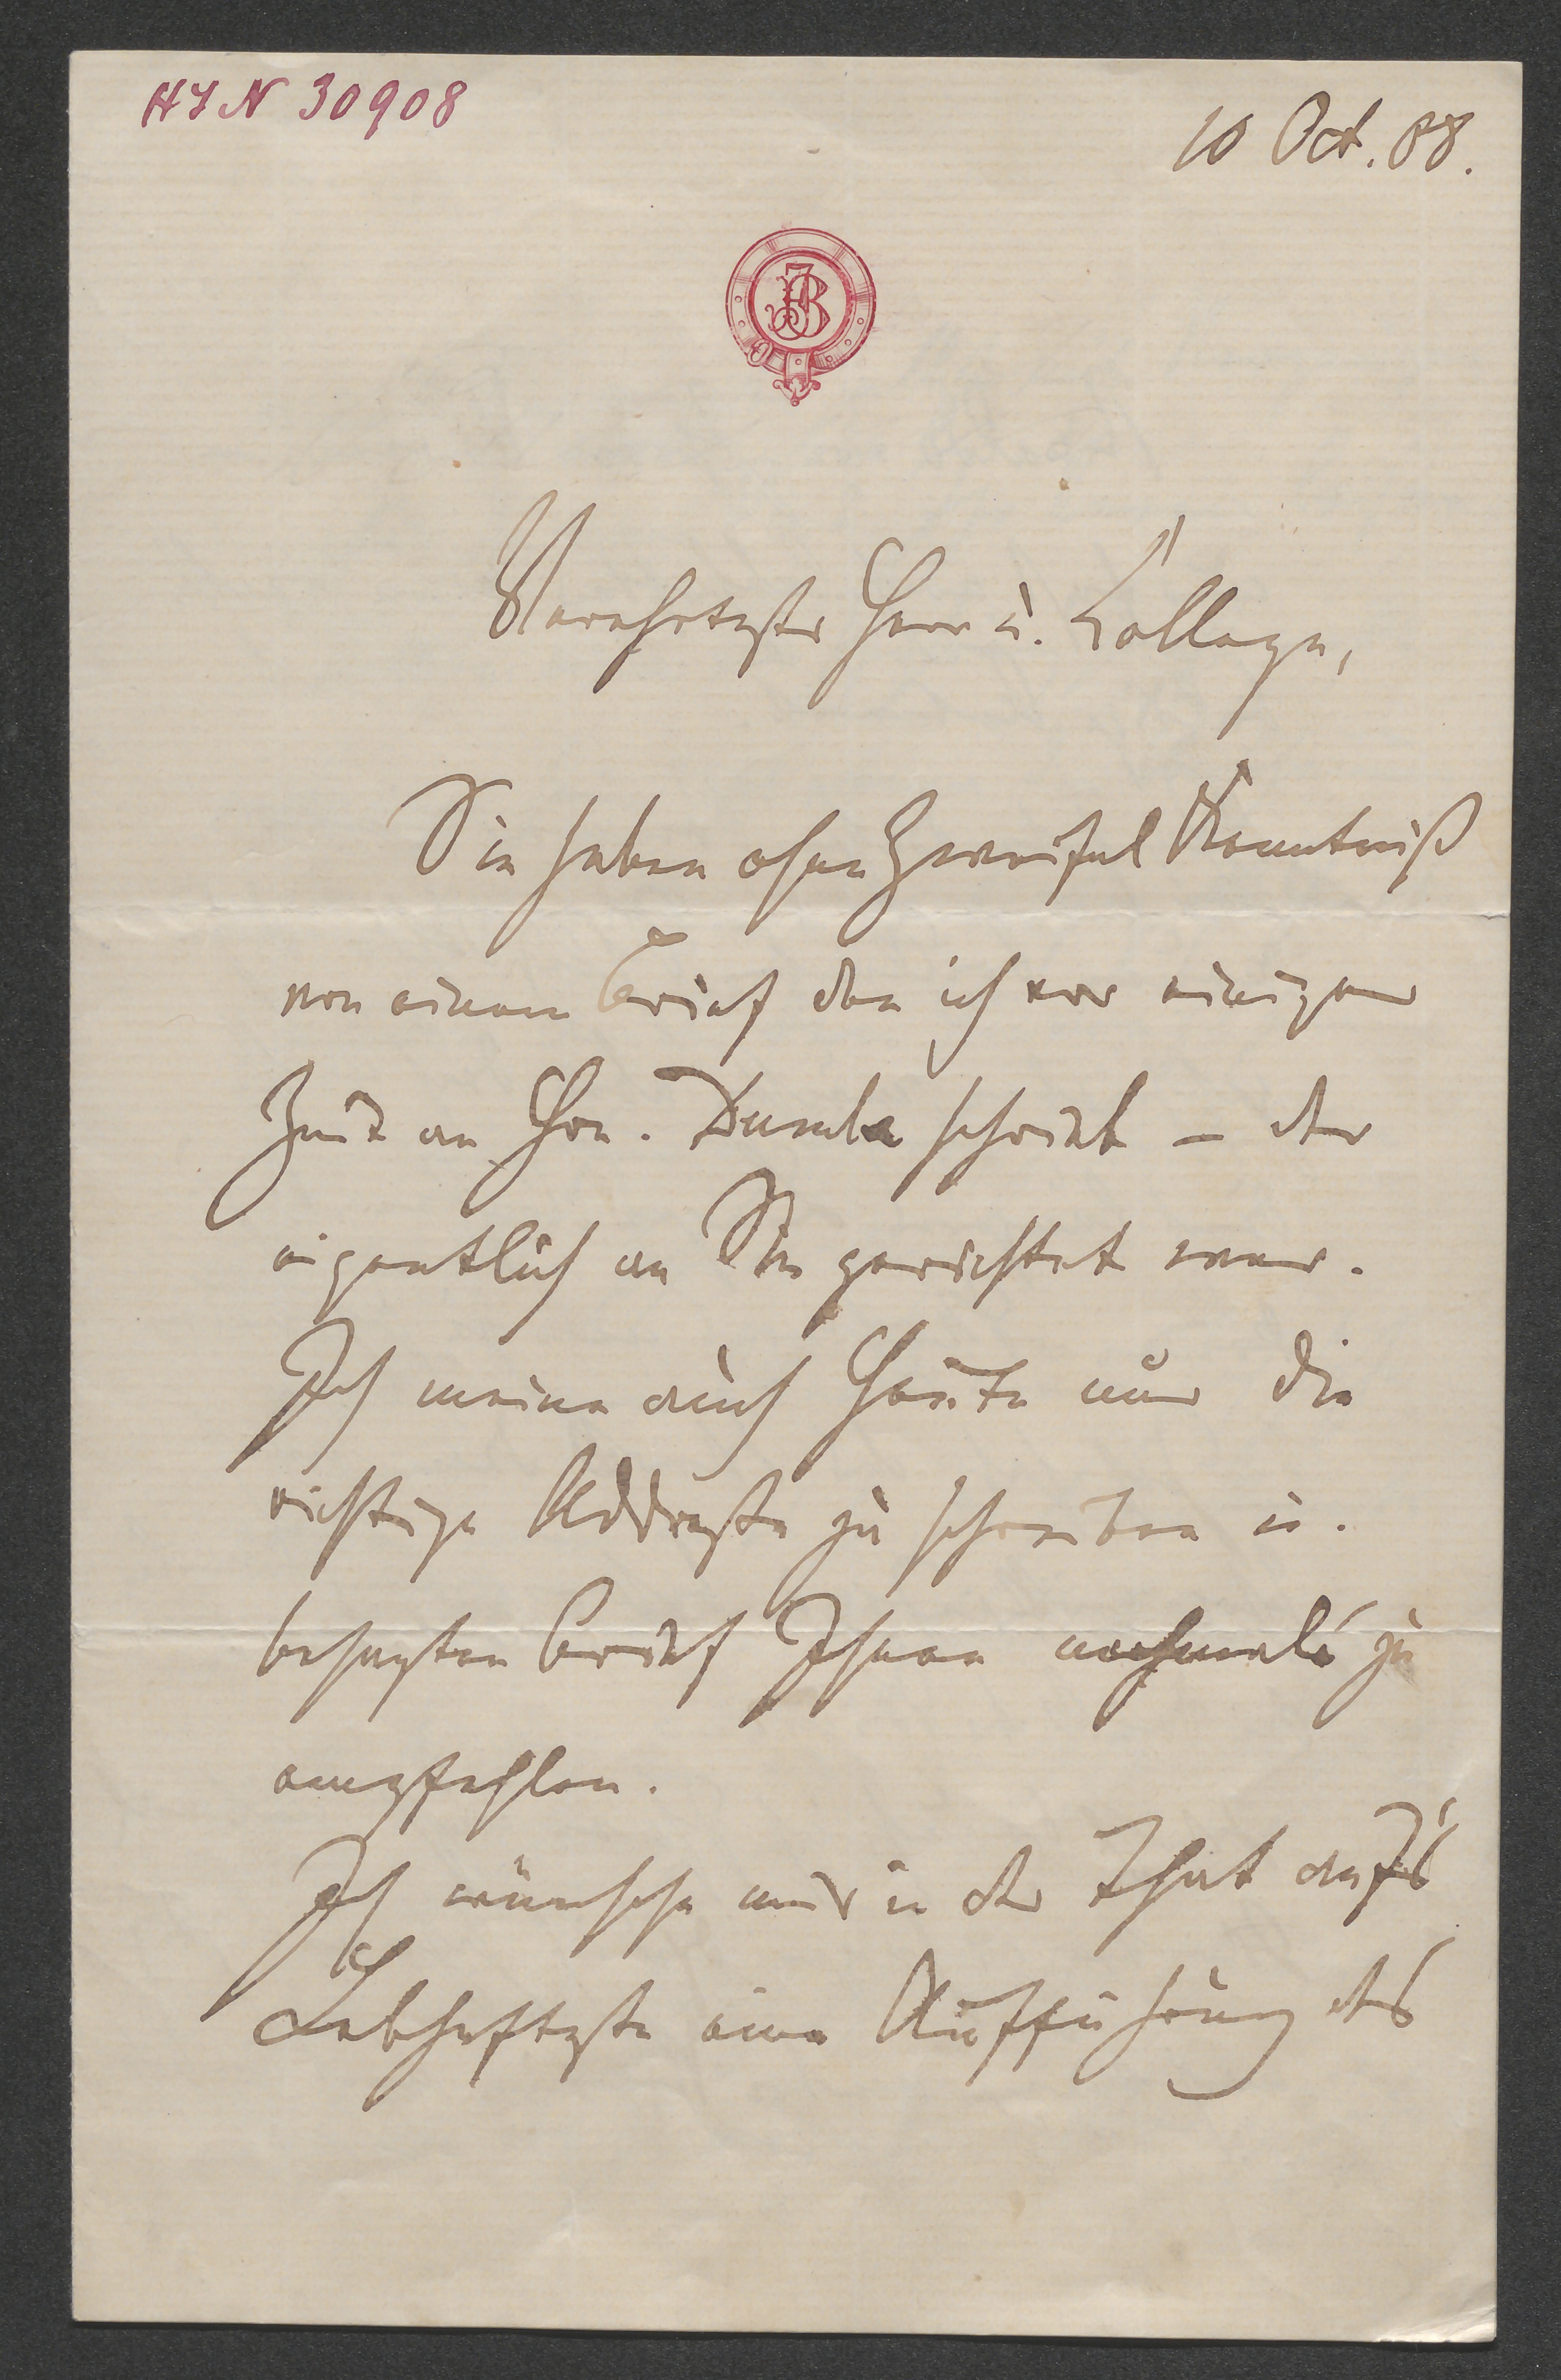 HIN 30908
10 Oct. 88.
JB
Verehrtester Herr u. College,
Sie haben ohne Zweifel Kenntniß
von einem Brief den ich vor einiger
Zeit an Hrn. Dumba schrieb – der
eigentlich an Sie gerichtet war.
Ich meine auch heute nur die
richtige Addresse zu schreiben u.
besagten Brief Ihnen nochmals zu
empfehlen.
Ich wünsche mir in der That auf's
Lebhafteste eine Aufführung des